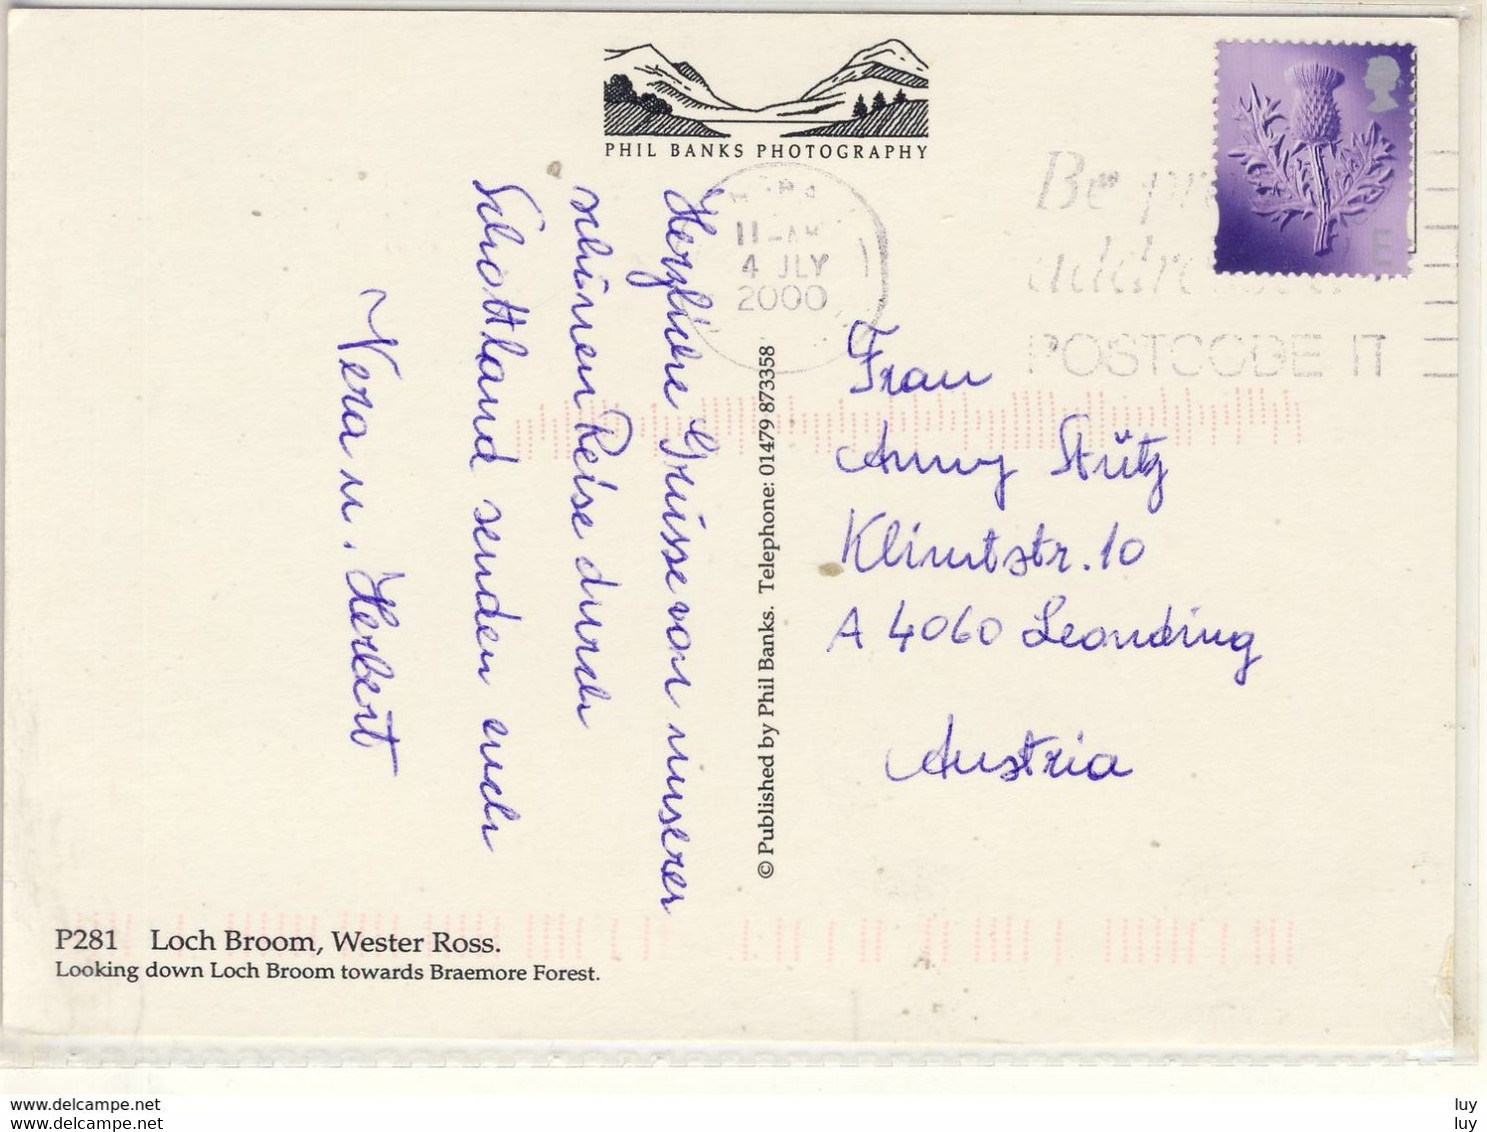 PHIL BANKS PHOTOGRAPHY
11-AM
4 JLY
2000
Be
POSTCODE IT
E
Herzliche Grüsse von unserer
schönen Reise durch
Schottland senden euch
Vera u. Herbert
© Published by Phil Banks. Telephone: 01479 873358
Frau
Anny Stütz
Klimtstr. 10
A 4060 Leonding
Austria
P281 Loch Broom, Wester Ross.
Looking down Loch Broom towards Braemore Forest.
www.delcampe.net luy
www.delcampe.net luy